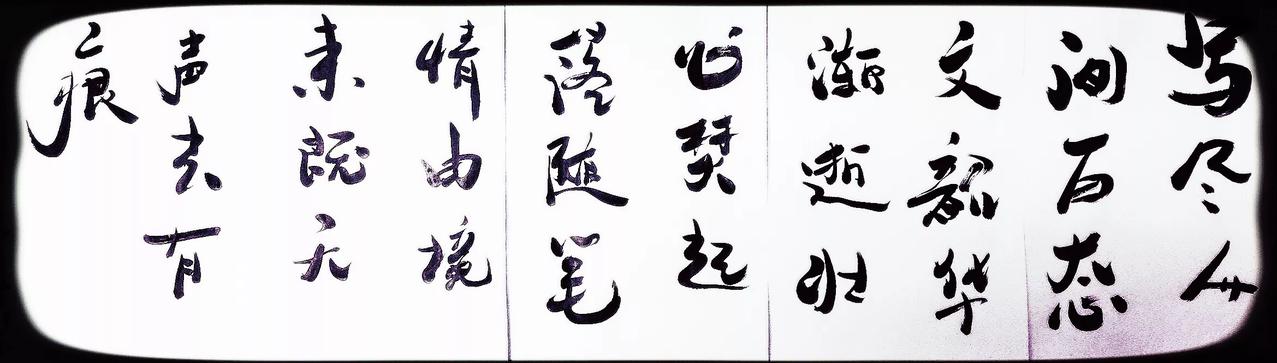 写尽人
间百态
文韶华
渐逝壮
心焚起
落随笔
情由境
来既无
声去有
痕